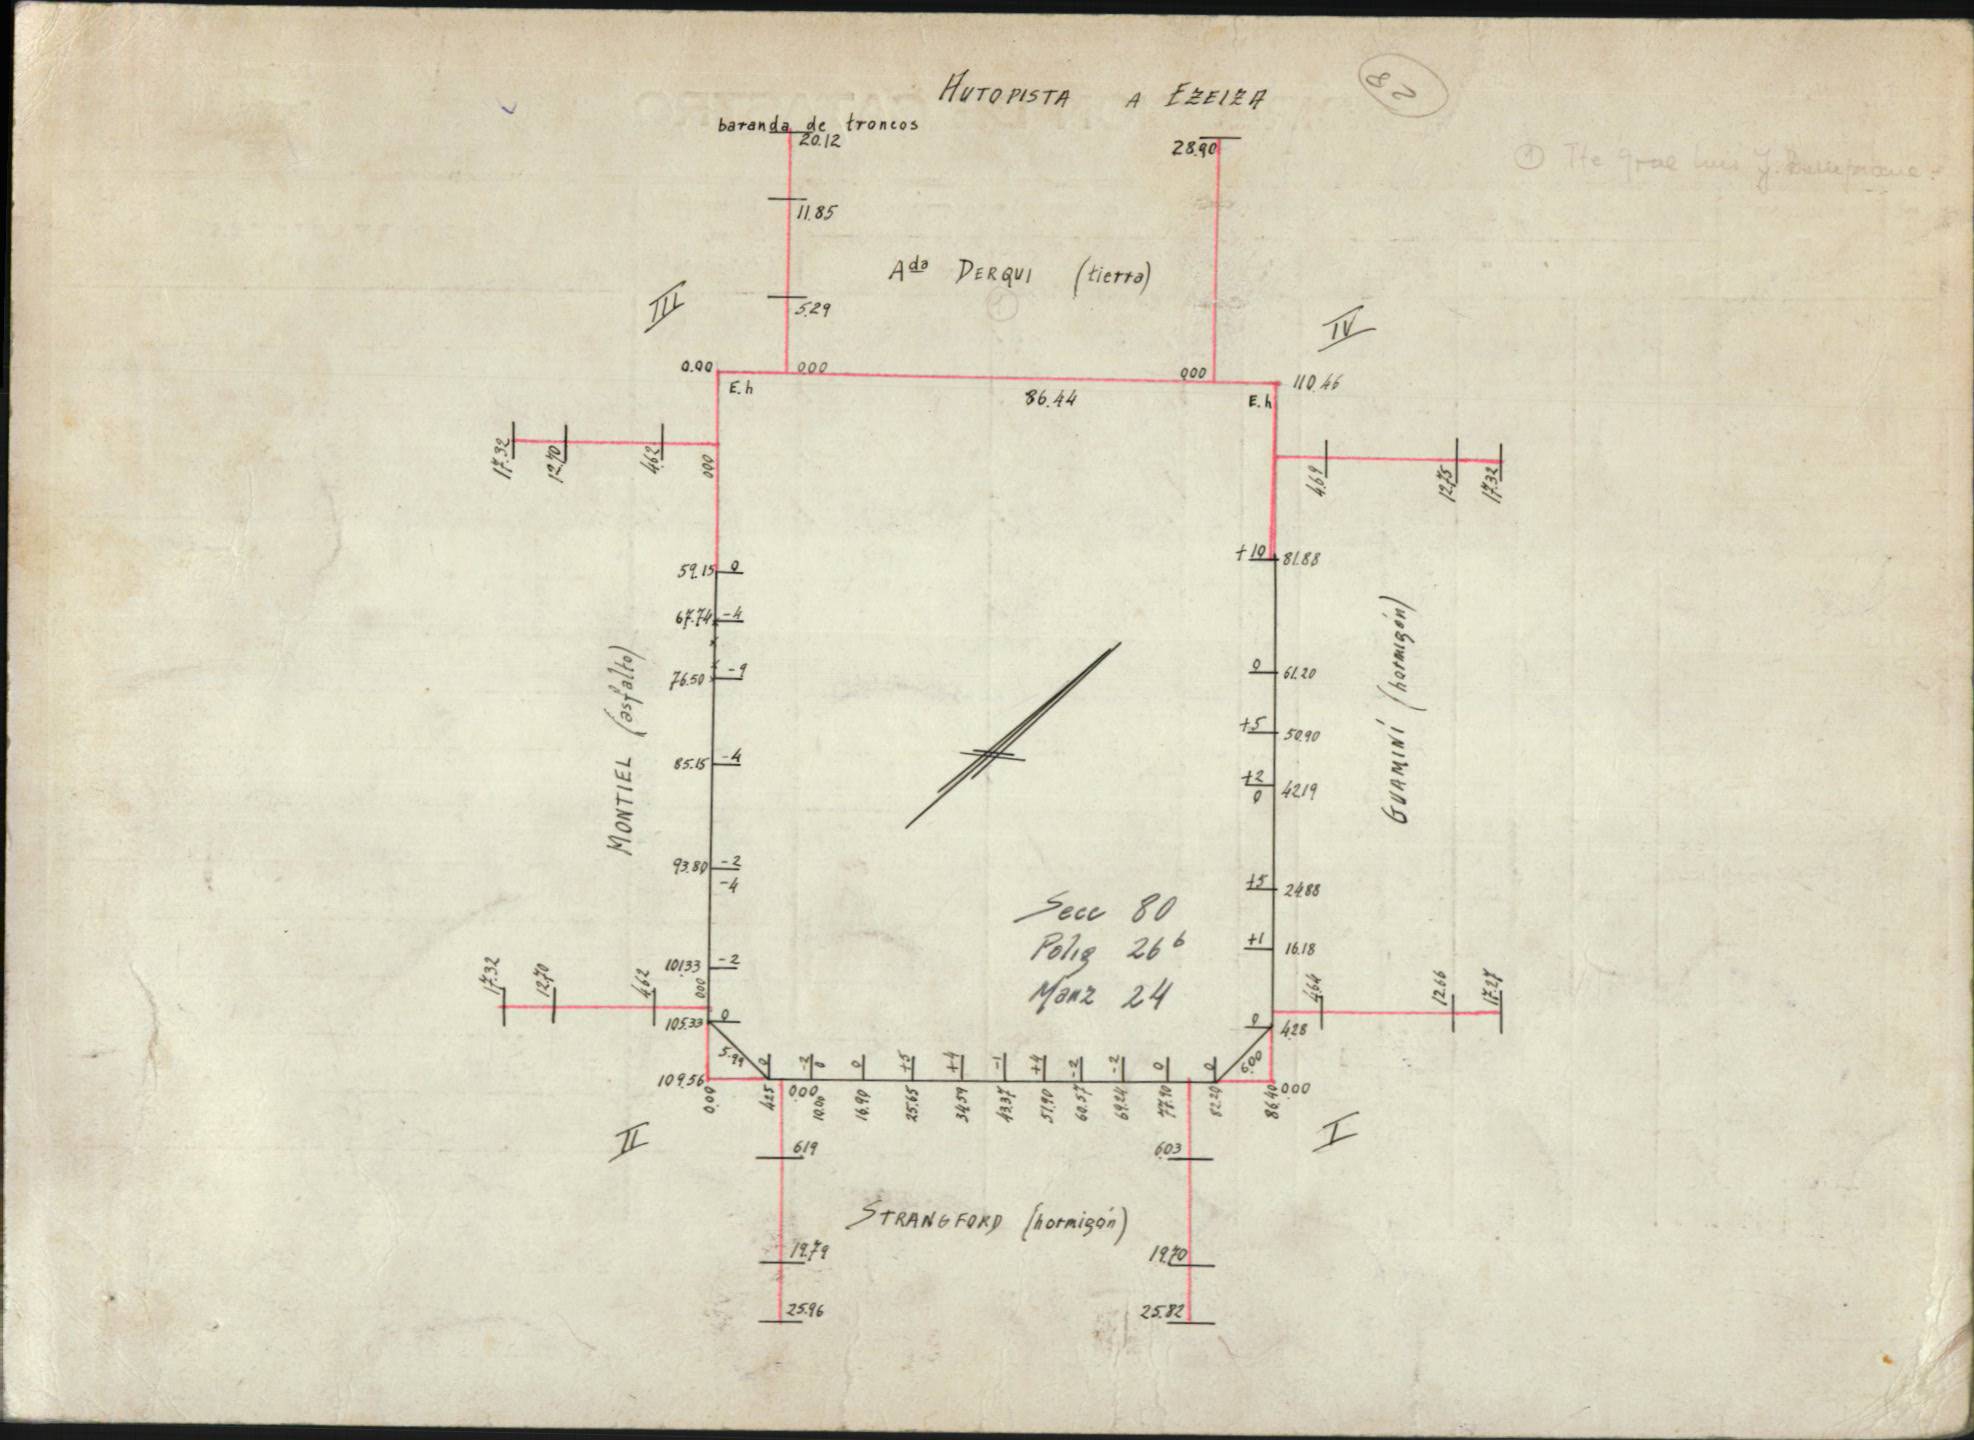 AUTOPISTA A EZEIZA
82
baranda de troncos
20.12
28.90
11.85
Ada DERQUI (tierra)
1
5.29
III
IV
0.00
000
000
110.46
E.h
86.44
E.h
17.32
12.70
4.62
000
4.69
12.75
17.32
59.15 0
+10 81.88
67.74 -4
76.50 -9
0 61.20
+5 50.90
85.15 -4
+2 42.19
0
MONTIEL (asfalto)
GUAMINÍ (hormigón)
93.80 -2
-4
+5 24.88
Secc 80
Polig 26b
Manz 24
+1 16.18
101.33 -2
17.32
12.70
4.62
000
4.64
12.66
17.27
105.33 0
0 4.28
5.99
6.00
0 -2 0 0 +5 +4 -1 +4 -2 -2 0 0
109.56
0.00
000
0.00 4.25 10.00 16.90 25.65 34.59 43.37 51.90 60.57 69.24 77.90 82.20 86.40
II
I
619
603
STRANGFORD (hormigón)
19.79
19.70
25.96
25.82